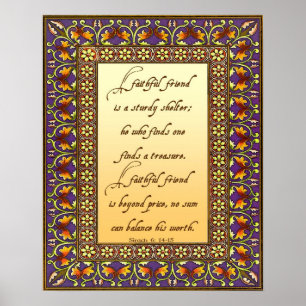 A faithful friend
is a sturdy shelter;
he who finds one
finds a treasure.
A faithful friend
is beyond price, no sum
can balance his worth.
Sirach 6: 14-15